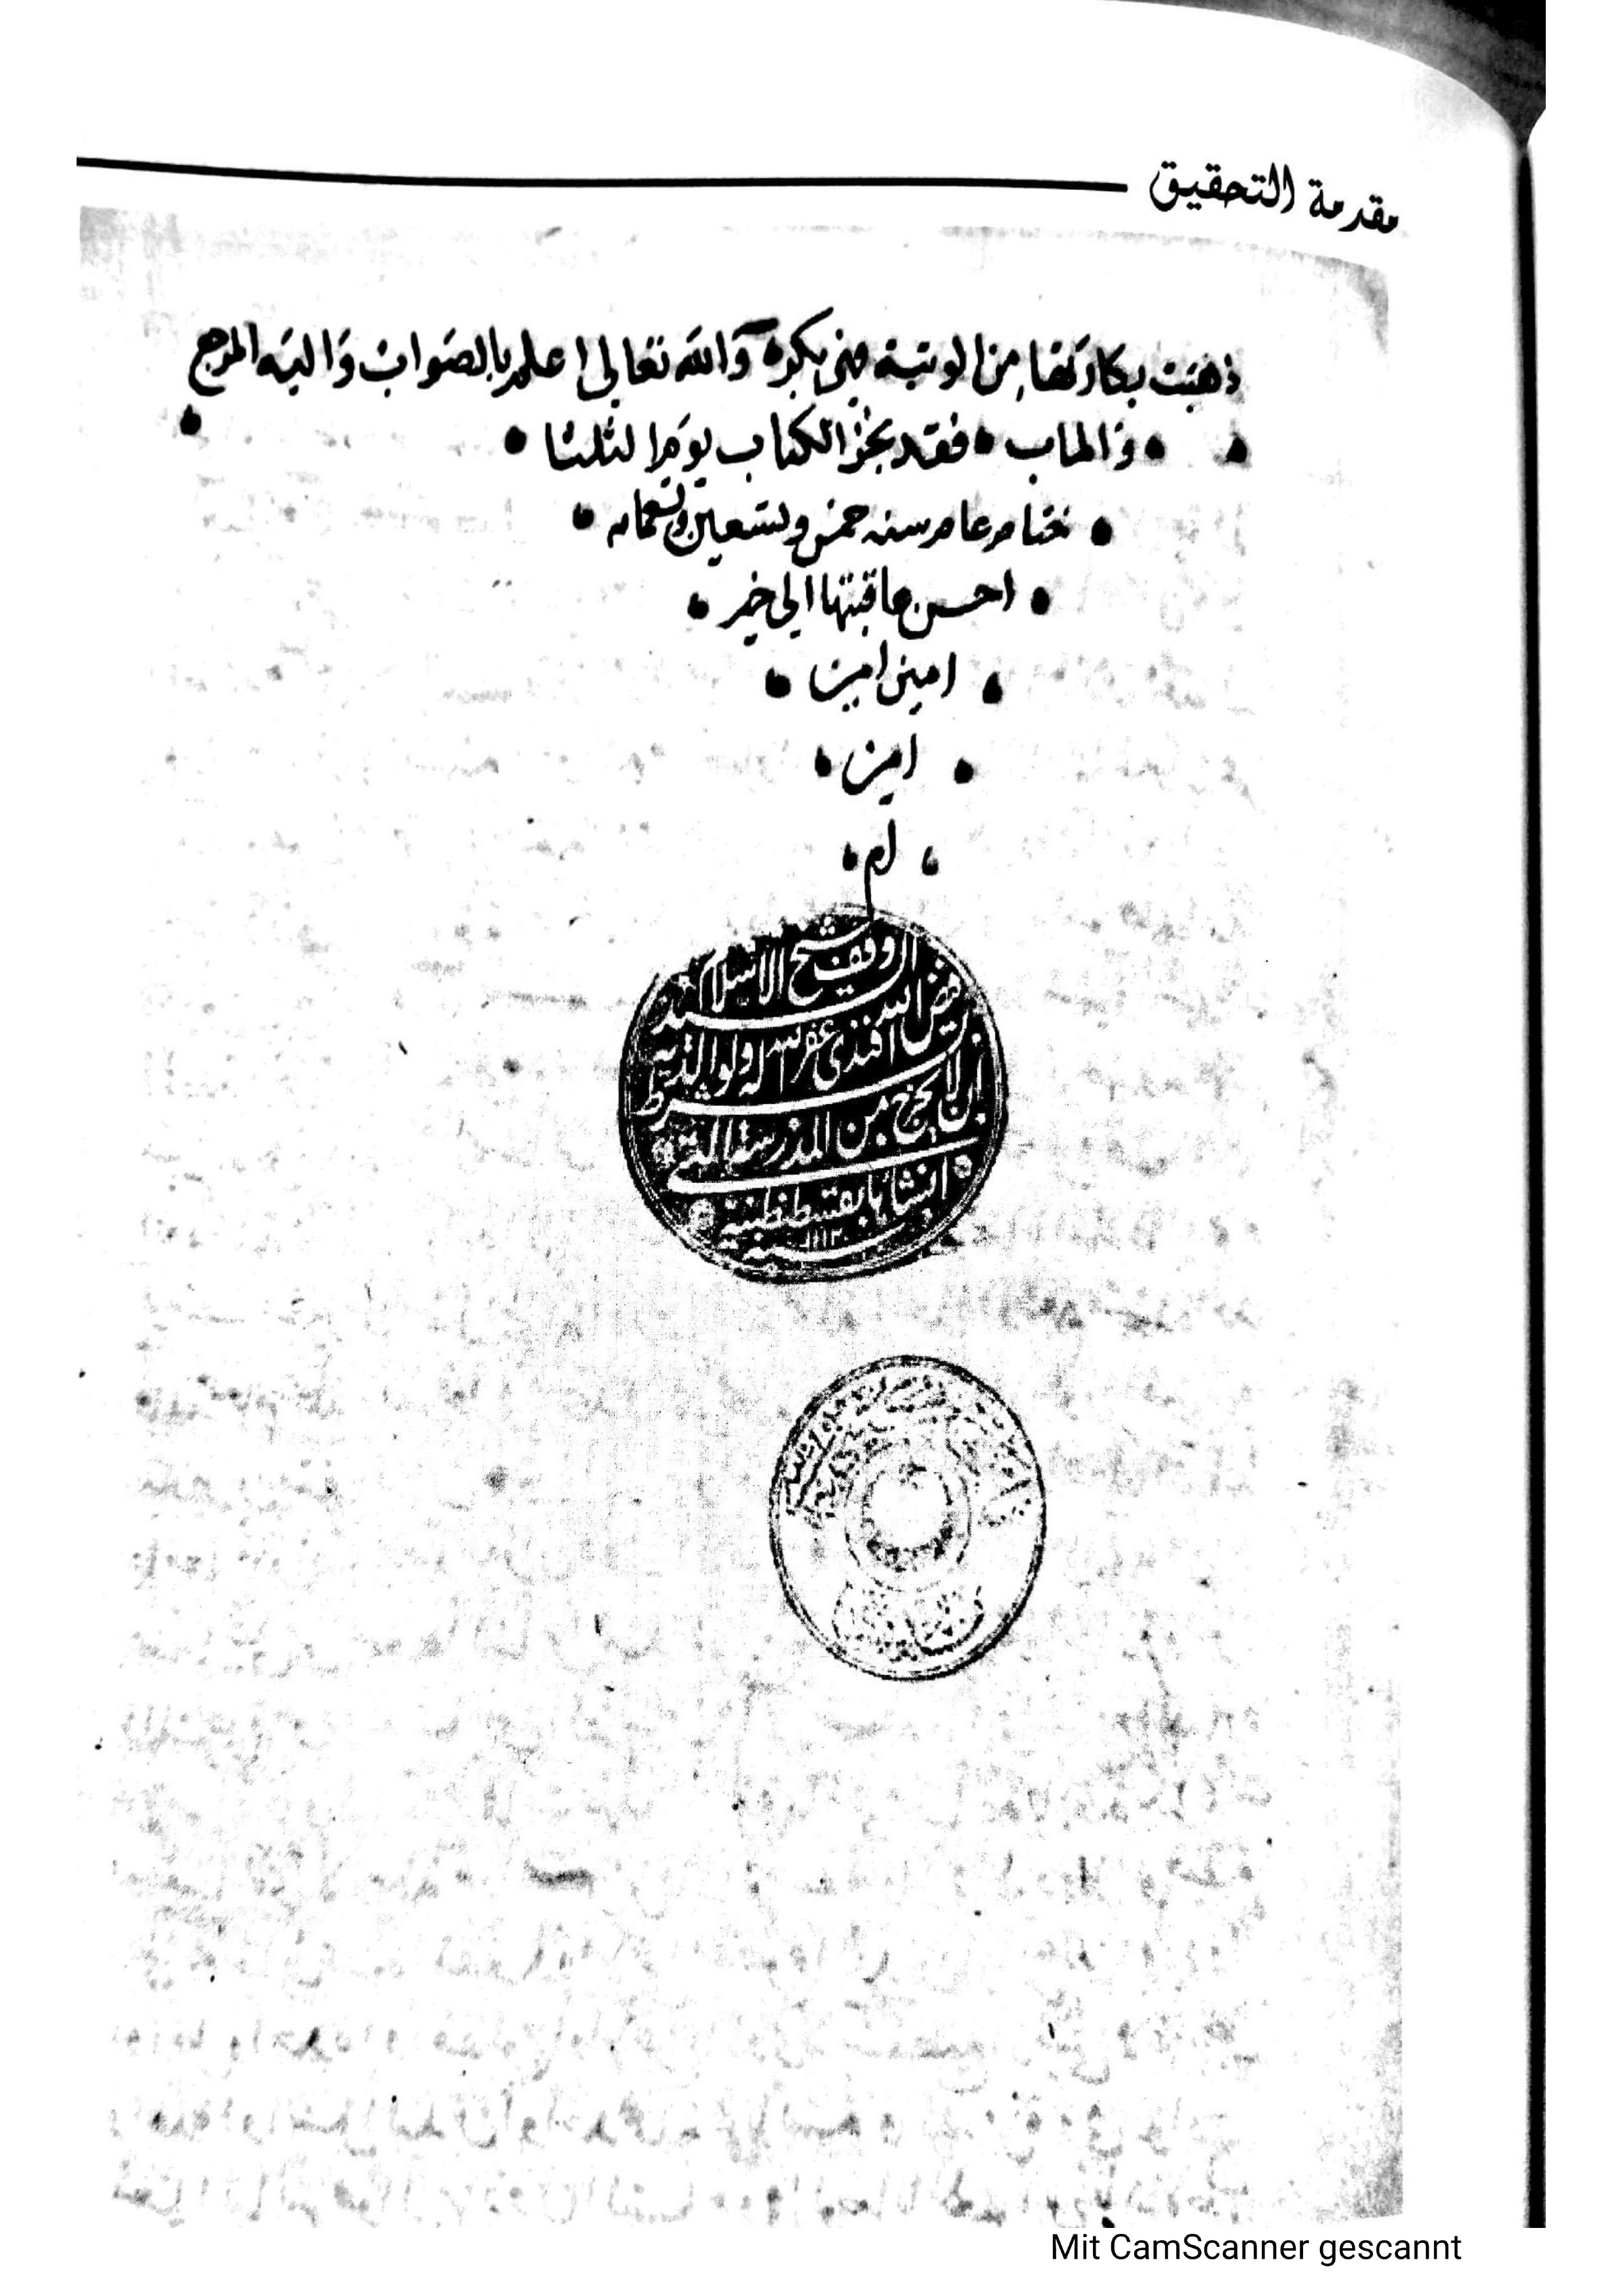 مقدمة التحقيق
ذهبت بكارتها من الوثبة فهى بكر والله تعالى اعلم بالصواب واليه المرجع
والماب فقد نجز الكتاب يوم الثلثا
ختام عام سنه خمس وتسعين وتسعمايه
احسن عاقبتها الى خير
امين امين
امين
ام
وقف شيخ الاسلام السيد
فيض الله افندى غفر الله له ولوالديه
بشرط ان لا يخرج من المدرسة التى
انشاها بقسطنطينية
سنة ١١١٣
Mit CamScanner gescannt